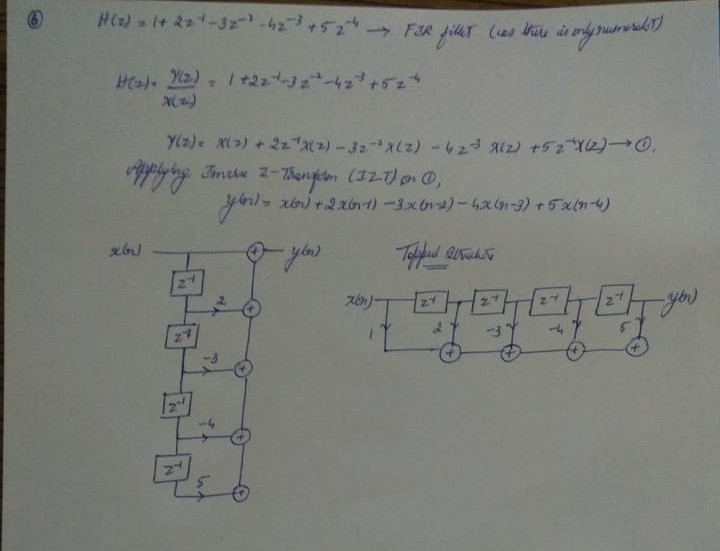 6
H(z) = 1 + 2z⁻¹ - 3z⁻² - 4z⁻³ + 5z⁻⁴ → FIR filter (as there is only numerator)
H(z) = Y(z)/X(z) = 1 + 2z⁻¹ - 3z⁻² - 4z⁻³ + 5z⁻⁴
Y(z) = X(z) + 2z⁻¹X(z) - 3z⁻²X(z) - 4z⁻³ X(z) + 5z⁻⁴X(z) → ①.
Applying Inverse Z-Transform (IZT) on ①,
y(n) = x(n) + 2x(n-1) - 3x(n-2) - 4x(n-3) + 5x(n-4)
x(n) + y(n)
z⁻¹
2 +
z⁻¹
-3 +
z⁻¹
-4 +
z⁻¹
5 +
Tapped
x(n) z⁻¹ z⁻¹ z⁻¹ z⁻¹ y(n)
1 2 -3 -4 5
+ + + +